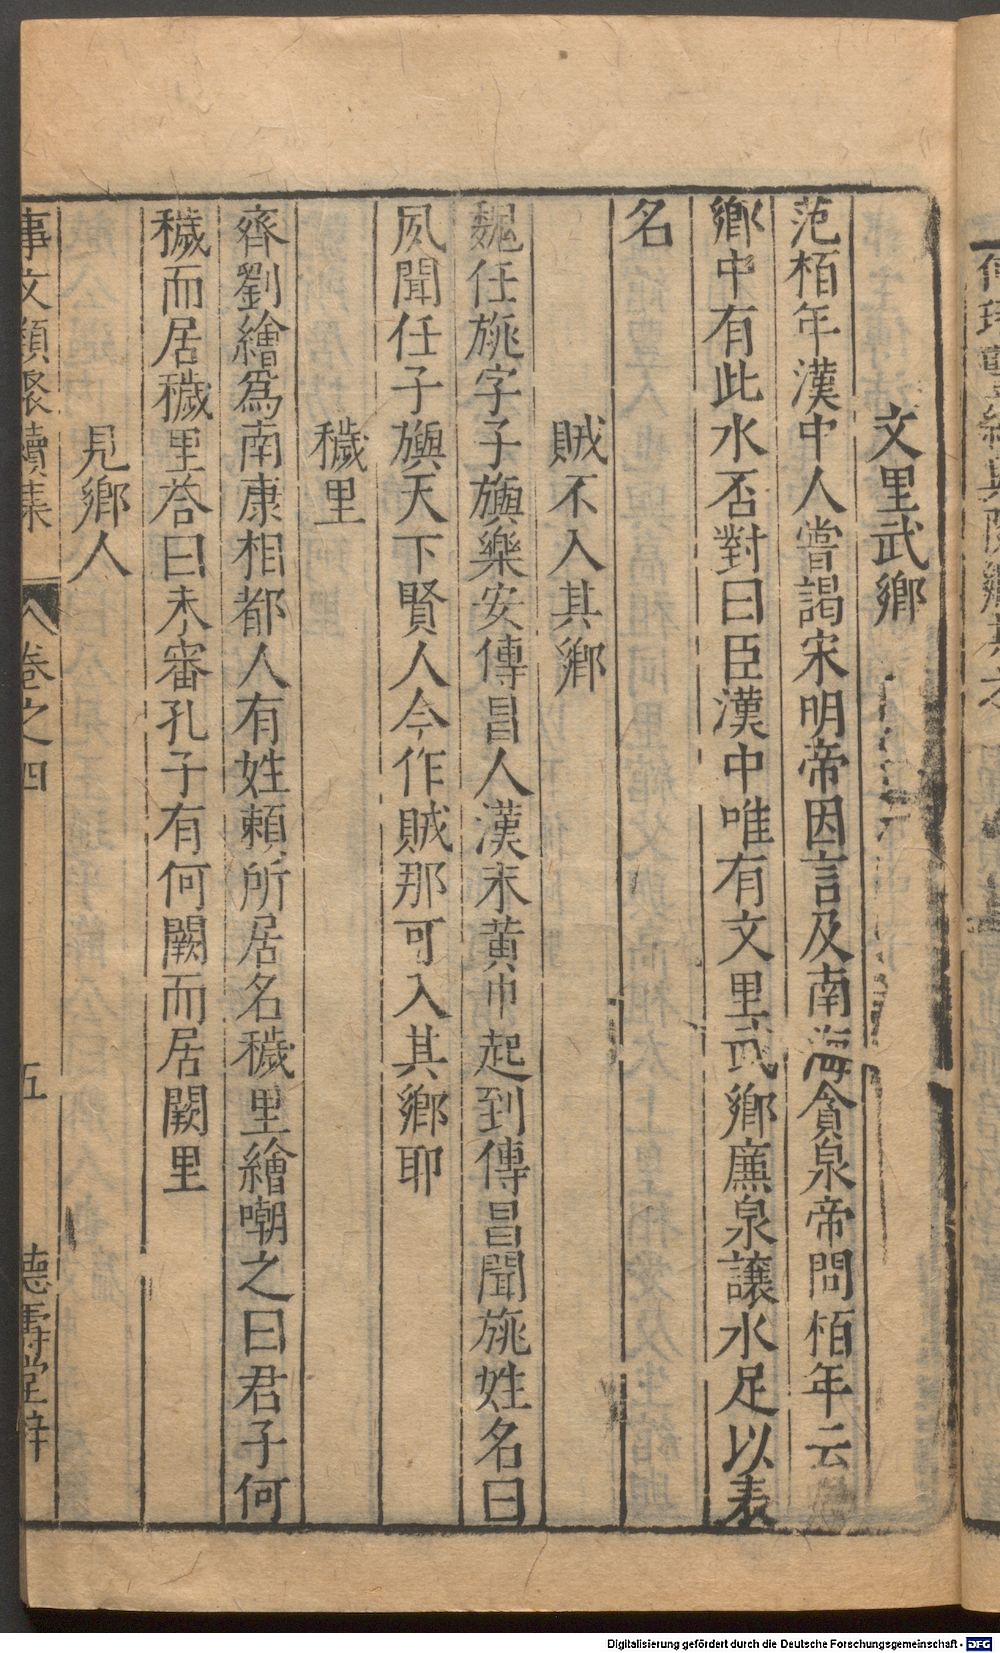 文里武鄉
范栢年漢中人嘗謁宋明帝因言及南海貪泉帝問栢年云
鄉中有此水否對曰臣漢中唯有文里武鄉廉泉讓水足以表
名
賊不入其鄉
魏任旐字子旟樂安傳昌人漢末黃巾起到傳昌聞旐姓名曰
夙聞任子旟天下賢人今作賊那可入其鄉耶
穢里
齊劉繪爲南康相都人有姓賴所居名穢里繪嘲之曰君子何
穢而居穢里荅曰未審孔子有何闕而居闕里
見鄉人
事文類聚續集 卷之四 五 德壽堂梓
Digitalisierung gefördert durch die Deutsche Forschungsgemeinschaft - DFG